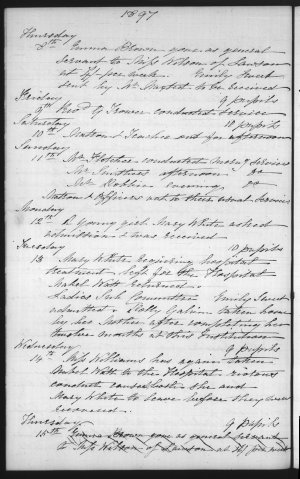 1897
Thursday
8th Emma Brown gone as general
servant to Miss Wilson of Lawson
at 7/- per week. Emily Sweet
sent by Mr to be received
9 pupils
Friday
9th Revd G Trower conducted service
10 pupils
Saturday
10th Matron & Teacher out for afternoon
Sunday
11th Mr Fletcher conducted morng Services
Mr Smithies afternoon do
Mr Robbie evening do
Matron & Officers out to their usual Services
Monday
12th A young girl Mary White asked
admission & was received
10 pupils
Tuesday
13 Mary White requiring hospital
treatment left for the Hospital
Mabel Watt returned.
Ladies Sub Committee Emily Sweet
admitted. Polly Galvin taken home
by her Mother after completing her
twelve months at this Institution
9 pupils
Wednesday
14th Miss Williams has again taken
Mabel Watt to the Hospital riotous
conduct caused both she and
Mary White to leave before they were
recovered.
9 pupils
Thursday
15th Emma Brown gone as general servant
to Miss Wilson of Lawson at 7/- per week